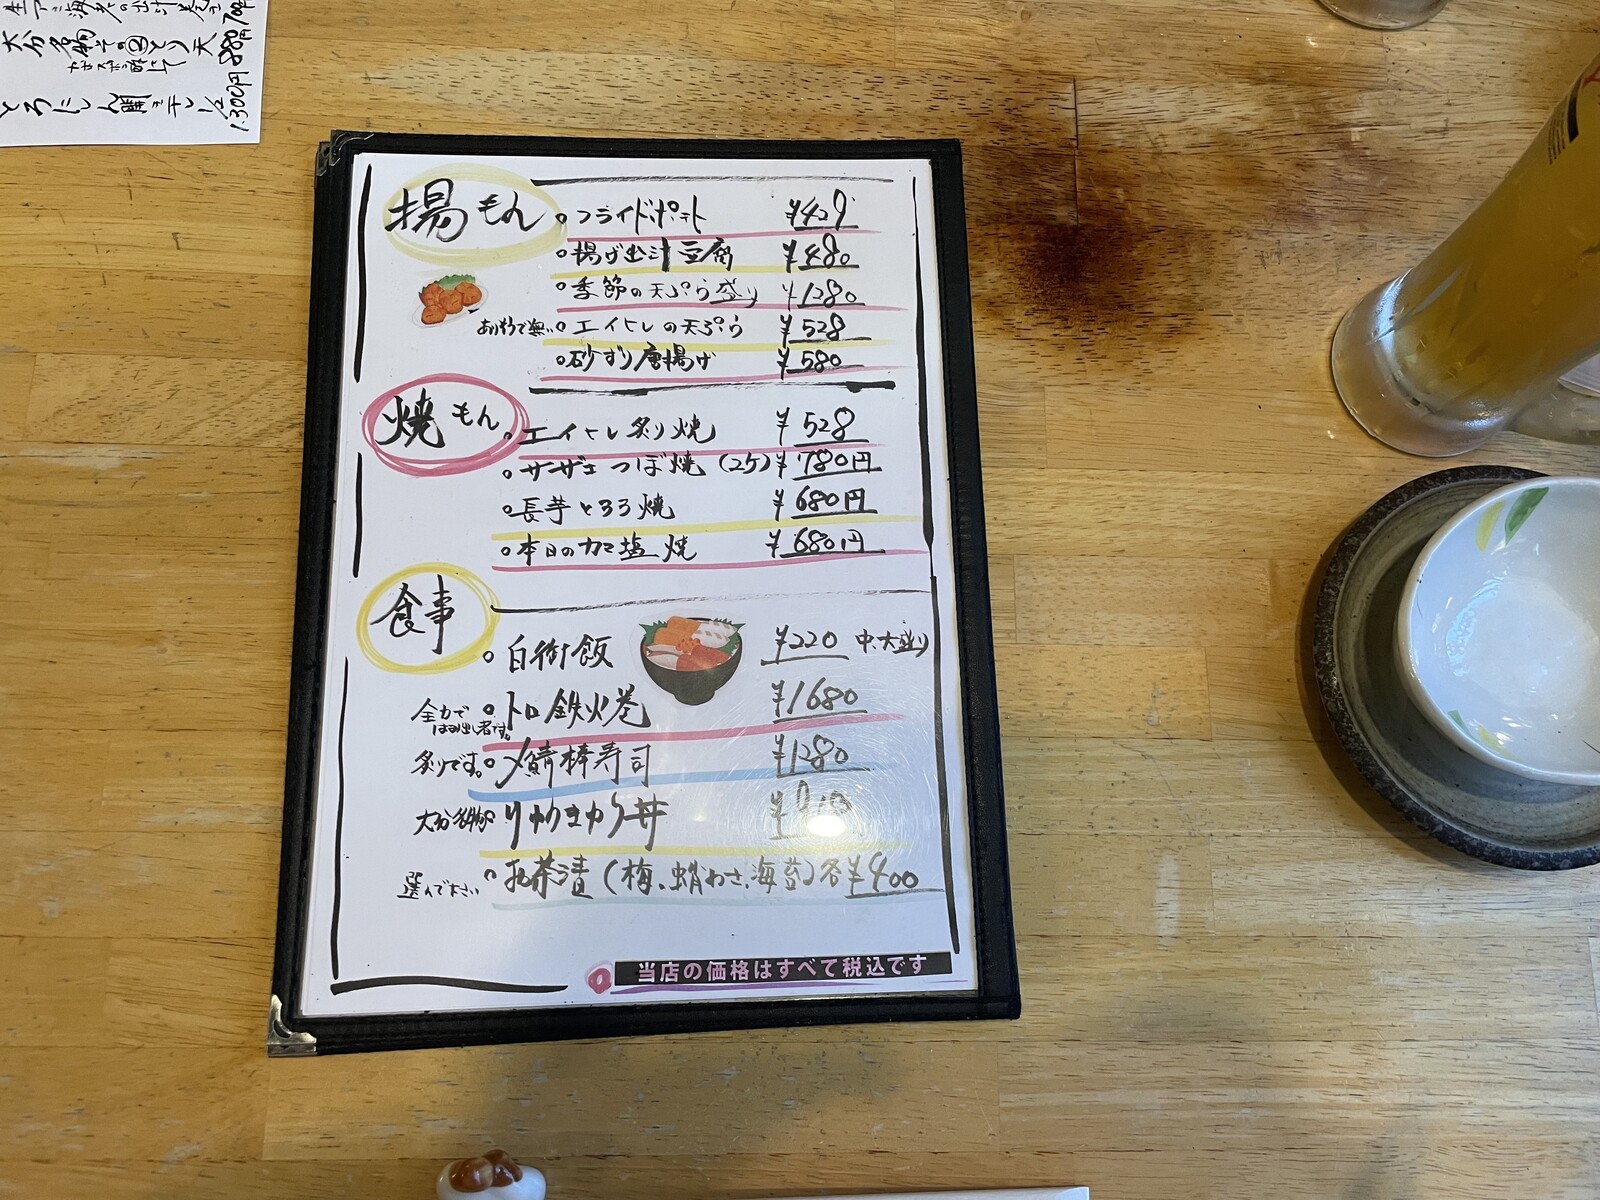 大分名物その②とり天 880円
カボスポン酢にて
とろにしん開き干し 1/2 1,300円
揚もん
フライドポテト ¥429
揚げ出汁豆腐 ¥480
季節の天ぷら盛り ¥1280
エイヒレの天ぷら ¥528
砂ずり唐揚げ ¥580
焼もん
エイヒレ炙り焼 ¥528
サザエつぼ焼(2ケ) ¥780円
長芋とろろ焼 ¥680円
本日のカマ塩焼 ¥680円
食事
白御飯 ¥220 中、大盛り
全力ではみ出し者です。 トロ鉄火巻 ¥1680
炙りです。 〆鯖棒寿司 ¥1280
大分名物 りゅうきゅう丼
選んで下さい お茶漬(梅、蛸わさ、海苔)各¥400
当店の価格はすべて税込です